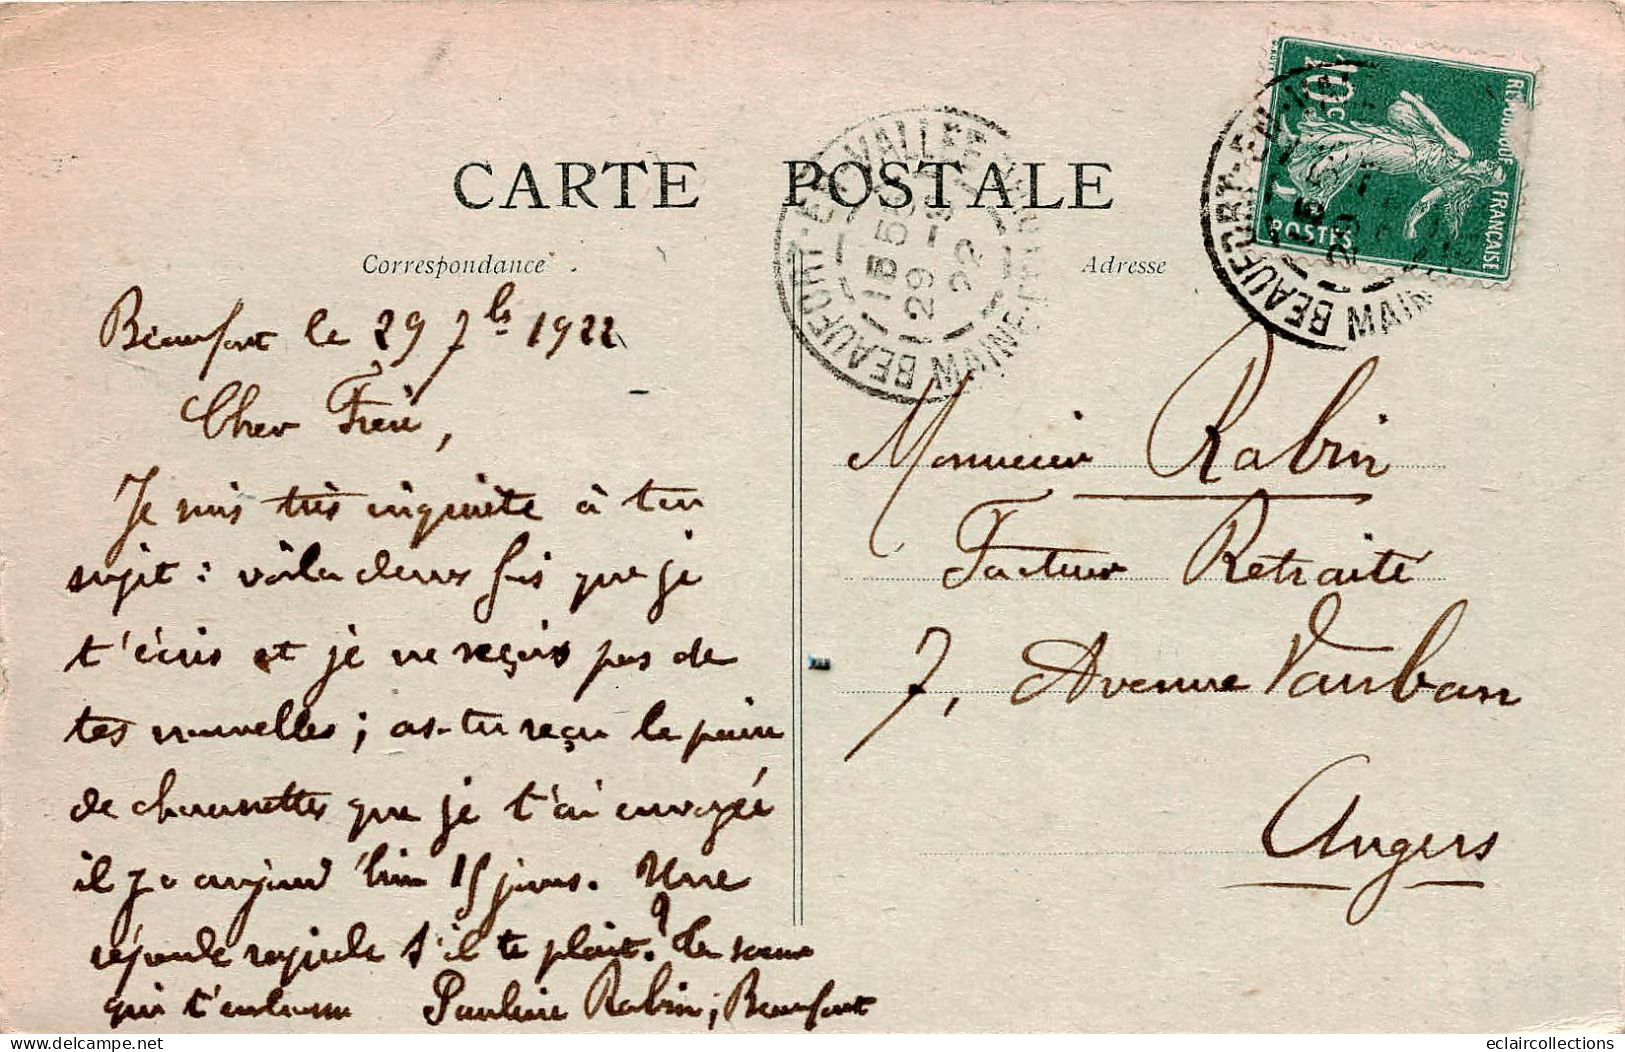 CARTE POSTALE
Correspondance
Adresse
BEAUFORT-EN-VALLEE
15 55
29 -9
22
MAINE-ET-LOIRE
BEAUFORT-EN-VA
MAIN
10c
REPUBLIQUE FRANÇAISE
POSTES
Beaufort le 29 7bre 1922
Cher Frère,
Je suis très inquiète à ton
sujet : voila deux fois que je
t'écris et je ne reçois pas de
tes nouvelles ; as-tu reçu la paire
de chaussettes que je t'ai envoyée
il y a aujourd'hui 15 jours. Une
réponse rapide s'il te plait ? Ta soeur
qui t'embrasse Pauline Rabin, Beaufort
Monsieur Rabin
Facteur Retraité
7, Avenue Vauban
Angers
eclaircollections